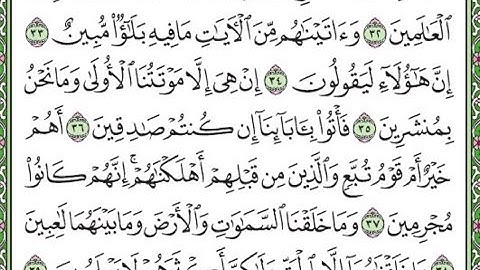 ٱلْعَٰلَمِينَ ٣٢ وَءَاتَيْنَٰهُم مِّنَ ٱلْءَايَٰتِ مَا فِيهِ بَلَٰٓؤٌا۟ مُّبِينٌ ٣٣
إِنَّ هَٰٓؤُلَآءِ لَيَقُولُونَ ٣٤ إِنْ هِىَ إِلَّا مَوْتَتُنَا ٱلْأُولَىٰ وَمَا نَحْنُ
بِمُنشَرِينَ ٣٥ فَأْتُوا۟ بِـَٔابَآئِنَآ إِن كُنتُمْ صَٰدِقِينَ ٣٦ أَهُمْ
خَيْرٌ أَمْ قَوْمُ تُبَّعٍ وَٱلَّذِينَ مِن قَبْلِهِمْ أَهْلَكْنَٰهُمْ ۖ إِنَّهُمْ كَانُوا۟
مُجْرِمِينَ ٣٧ وَمَا خَلَقْنَا ٱلسَّمَٰوَٰتِ وَٱلْأَرْضَ وَمَا بَيْنَهُمَا لَٰعِبِينَ